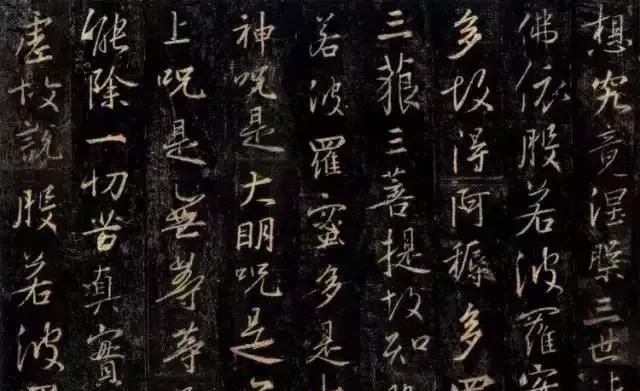 想究竟涅槃三世
佛依般若波羅蜜
多故得阿耨多羅
三藐三菩提故知
若波羅蜜多是大
神咒是大明咒是
上咒是無等等
能除一切苦真實
虛故說般若波羅